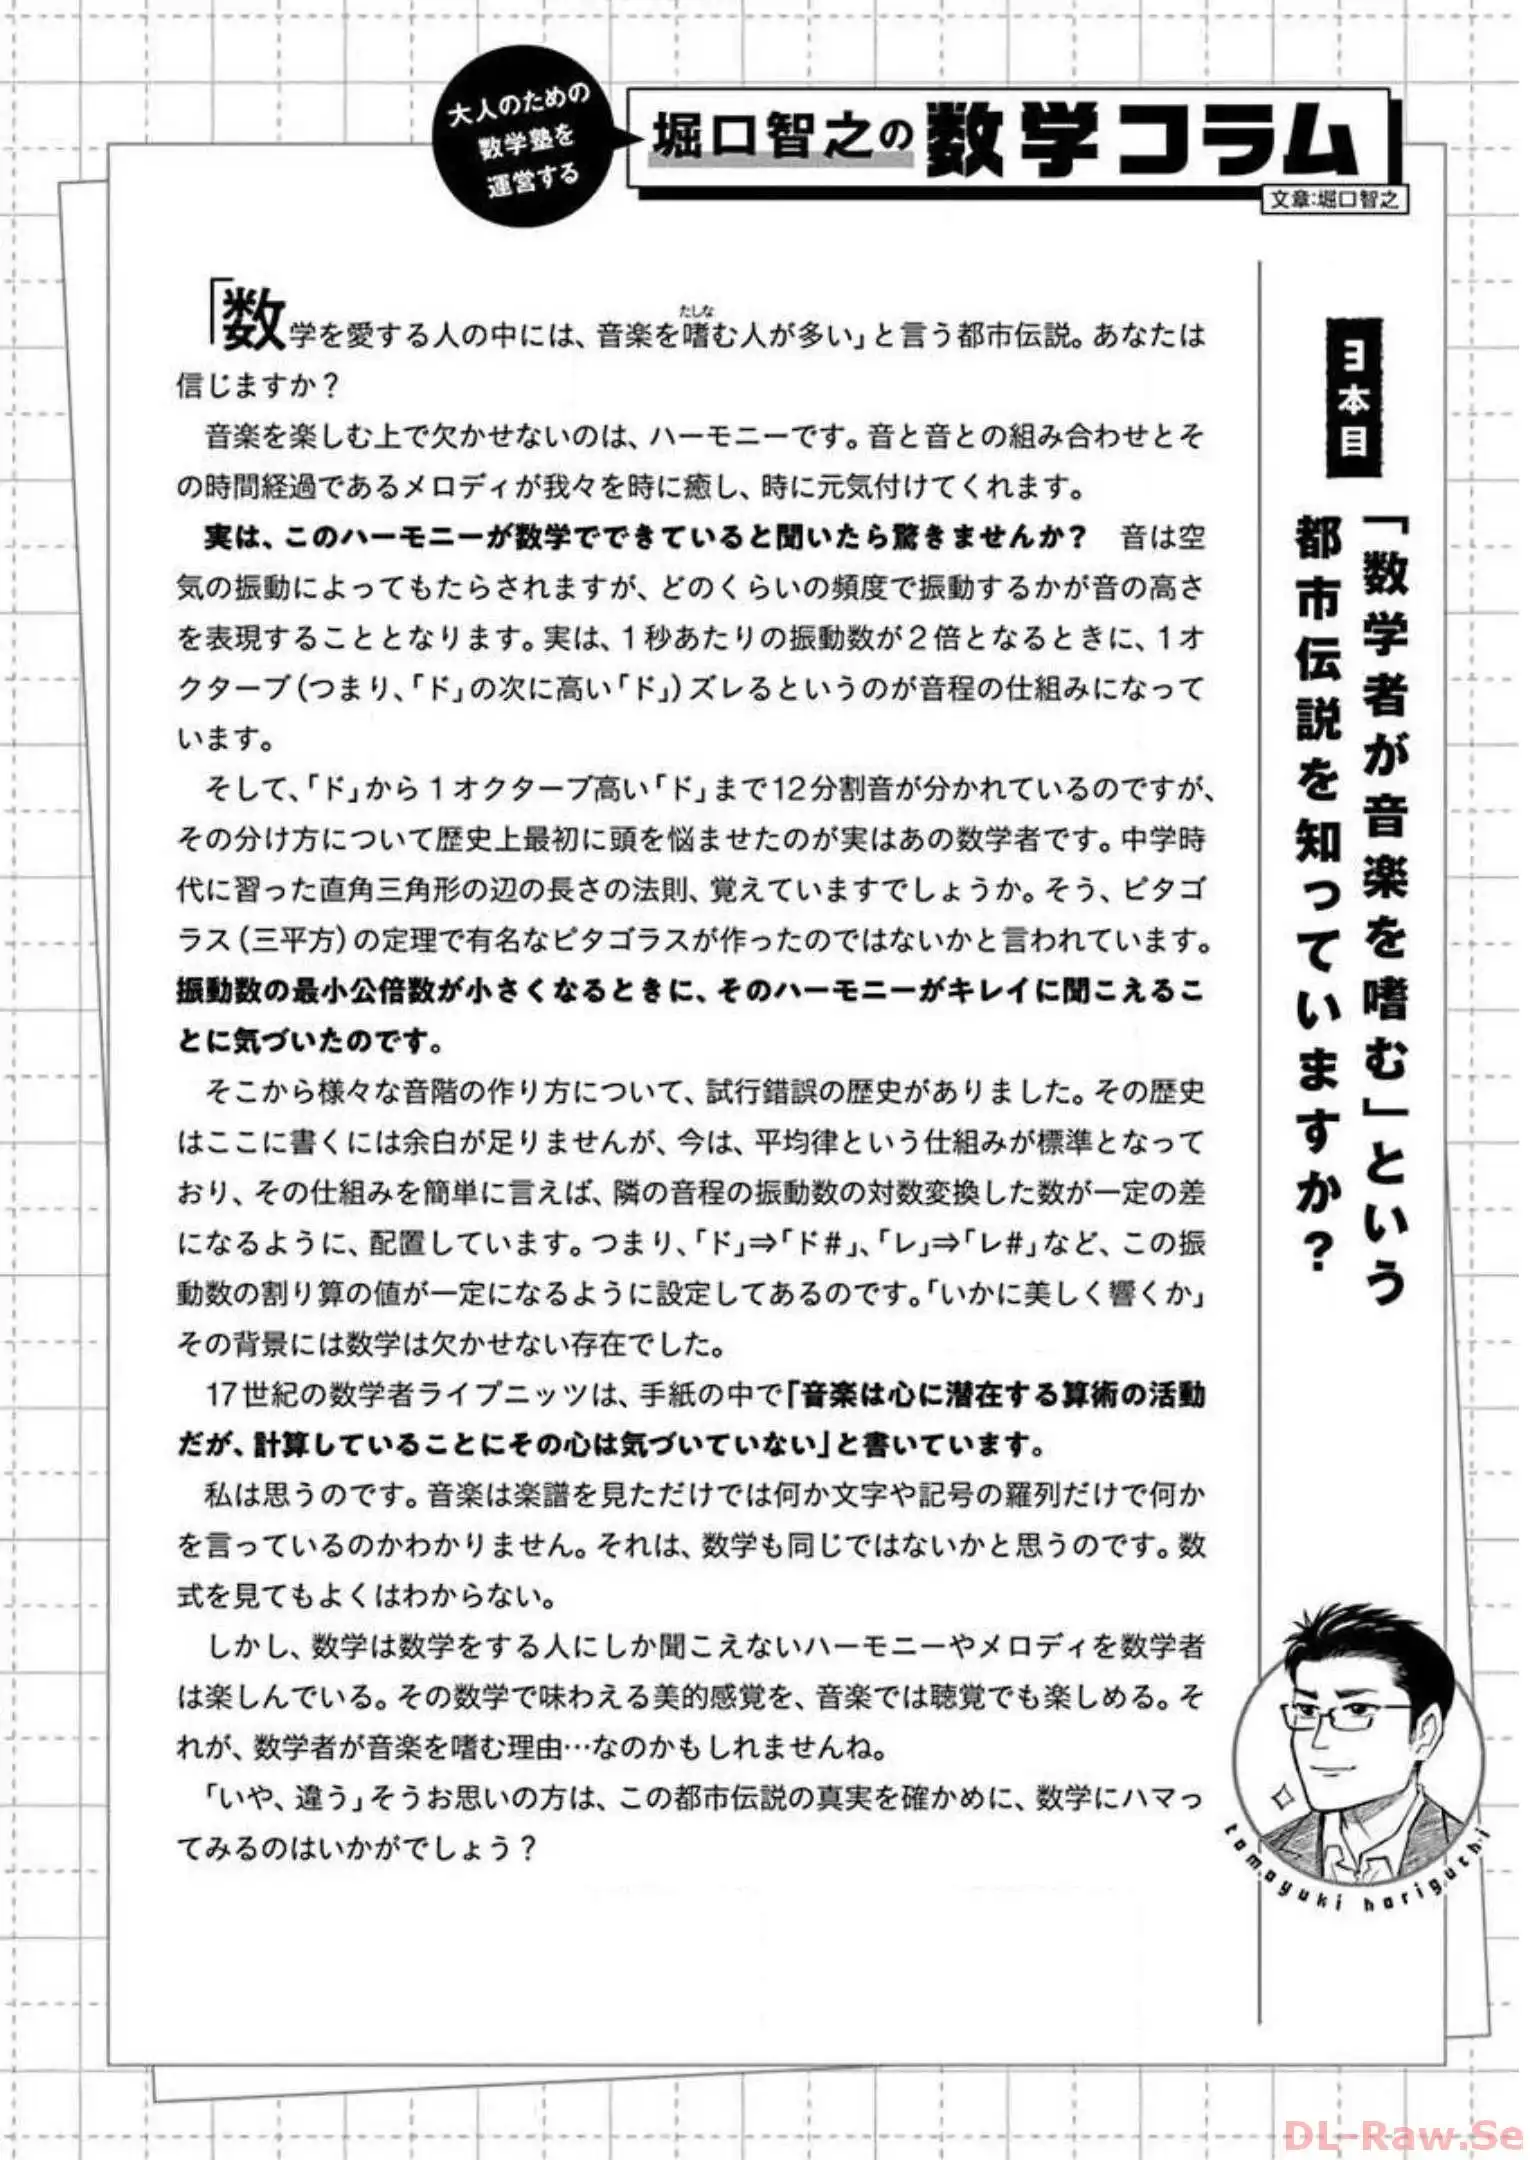 大人のための
数学塾を
運営する
堀口智之の数学コラム
文章:堀口智之
3本目
「数学者が音楽を嗜む」という
都市伝説を知っていますか?
「数学を愛する人の中には、音楽を嗜む人が多い」と言う都市伝説。あなたは
たしな
信じますか?
音楽を楽しむ上で欠かせないのは、ハーモニーです。音と音との組み合わせとそ
の時間経過であるメロディが我々を時に癒し、時に元気付けてくれます。
実は、このハーモニーが数学でできていると聞いたら驚きませんか? 音は空
気の振動によってもたらされますが、どのくらいの頻度で振動するかが音の高さ
を表現することとなります。実は、1秒あたりの振動数が2倍となるときに、1オ
クターブ(つまり、「ド」の次に高い「ド」)ズレるというのが音程の仕組みになって
います。
そして、「ド」から1オクターブ高い「ド」まで12分割音が分かれているのですが、
その分け方について歴史上最初に頭を悩ませたのが実はあの数学者です。中学時
代に習った直角三角形の辺の長さの法則、覚えていますでしょうか。そう、ピタゴ
ラス(三平方)の定理で有名なピタゴラスが作ったのではないかと言われています。
振動数の最小公倍数が小さくなるときに、そのハーモニーがキレイに聞こえるこ
とに気づいたのです。
そこから様々な音階の作り方について、試行錯誤の歴史がありました。その歴史
はここに書くには余白が足りませんが、今は、平均律という仕組みが標準となって
おり、その仕組みを簡単に言えば、隣の音程の振動数の対数変換した数が一定の差
になるように、配置しています。つまり、「ド」⇒「ド#」、「レ」⇒「レ#」など、この振
動数の割り算の値が一定になるように設定してあるのです。「いかに美しく響くか」
その背景には数学は欠かせない存在でした。
17世紀の数学者ライプニッツは、手紙の中で「音楽は心に潜在する算術の活動
だが、計算していることにその心は気づいていない」と書いています。
私は思うのです。音楽は楽譜を見ただけでは何か文字や記号の羅列だけで何か
を言っているのかわかりません。それは、数学も同じではないかと思うのです。数
式を見てもよくはわからない。
しかし、数学は数学をする人にしか聞こえないハーモニーやメロディを数学者
は楽しんでいる。その数学で味わえる美的感覚を、音楽では聴覚でも楽しめる。そ
れが、数学者が音楽を嗜む理由…なのかもしれませんね。
「いや、違う」そうお思いの方は、この都市伝説の真実を確かめに、数学にハマっ
てみるのはいかがでしょう?
tomoyuki horiguchi
DL-Raw.Se